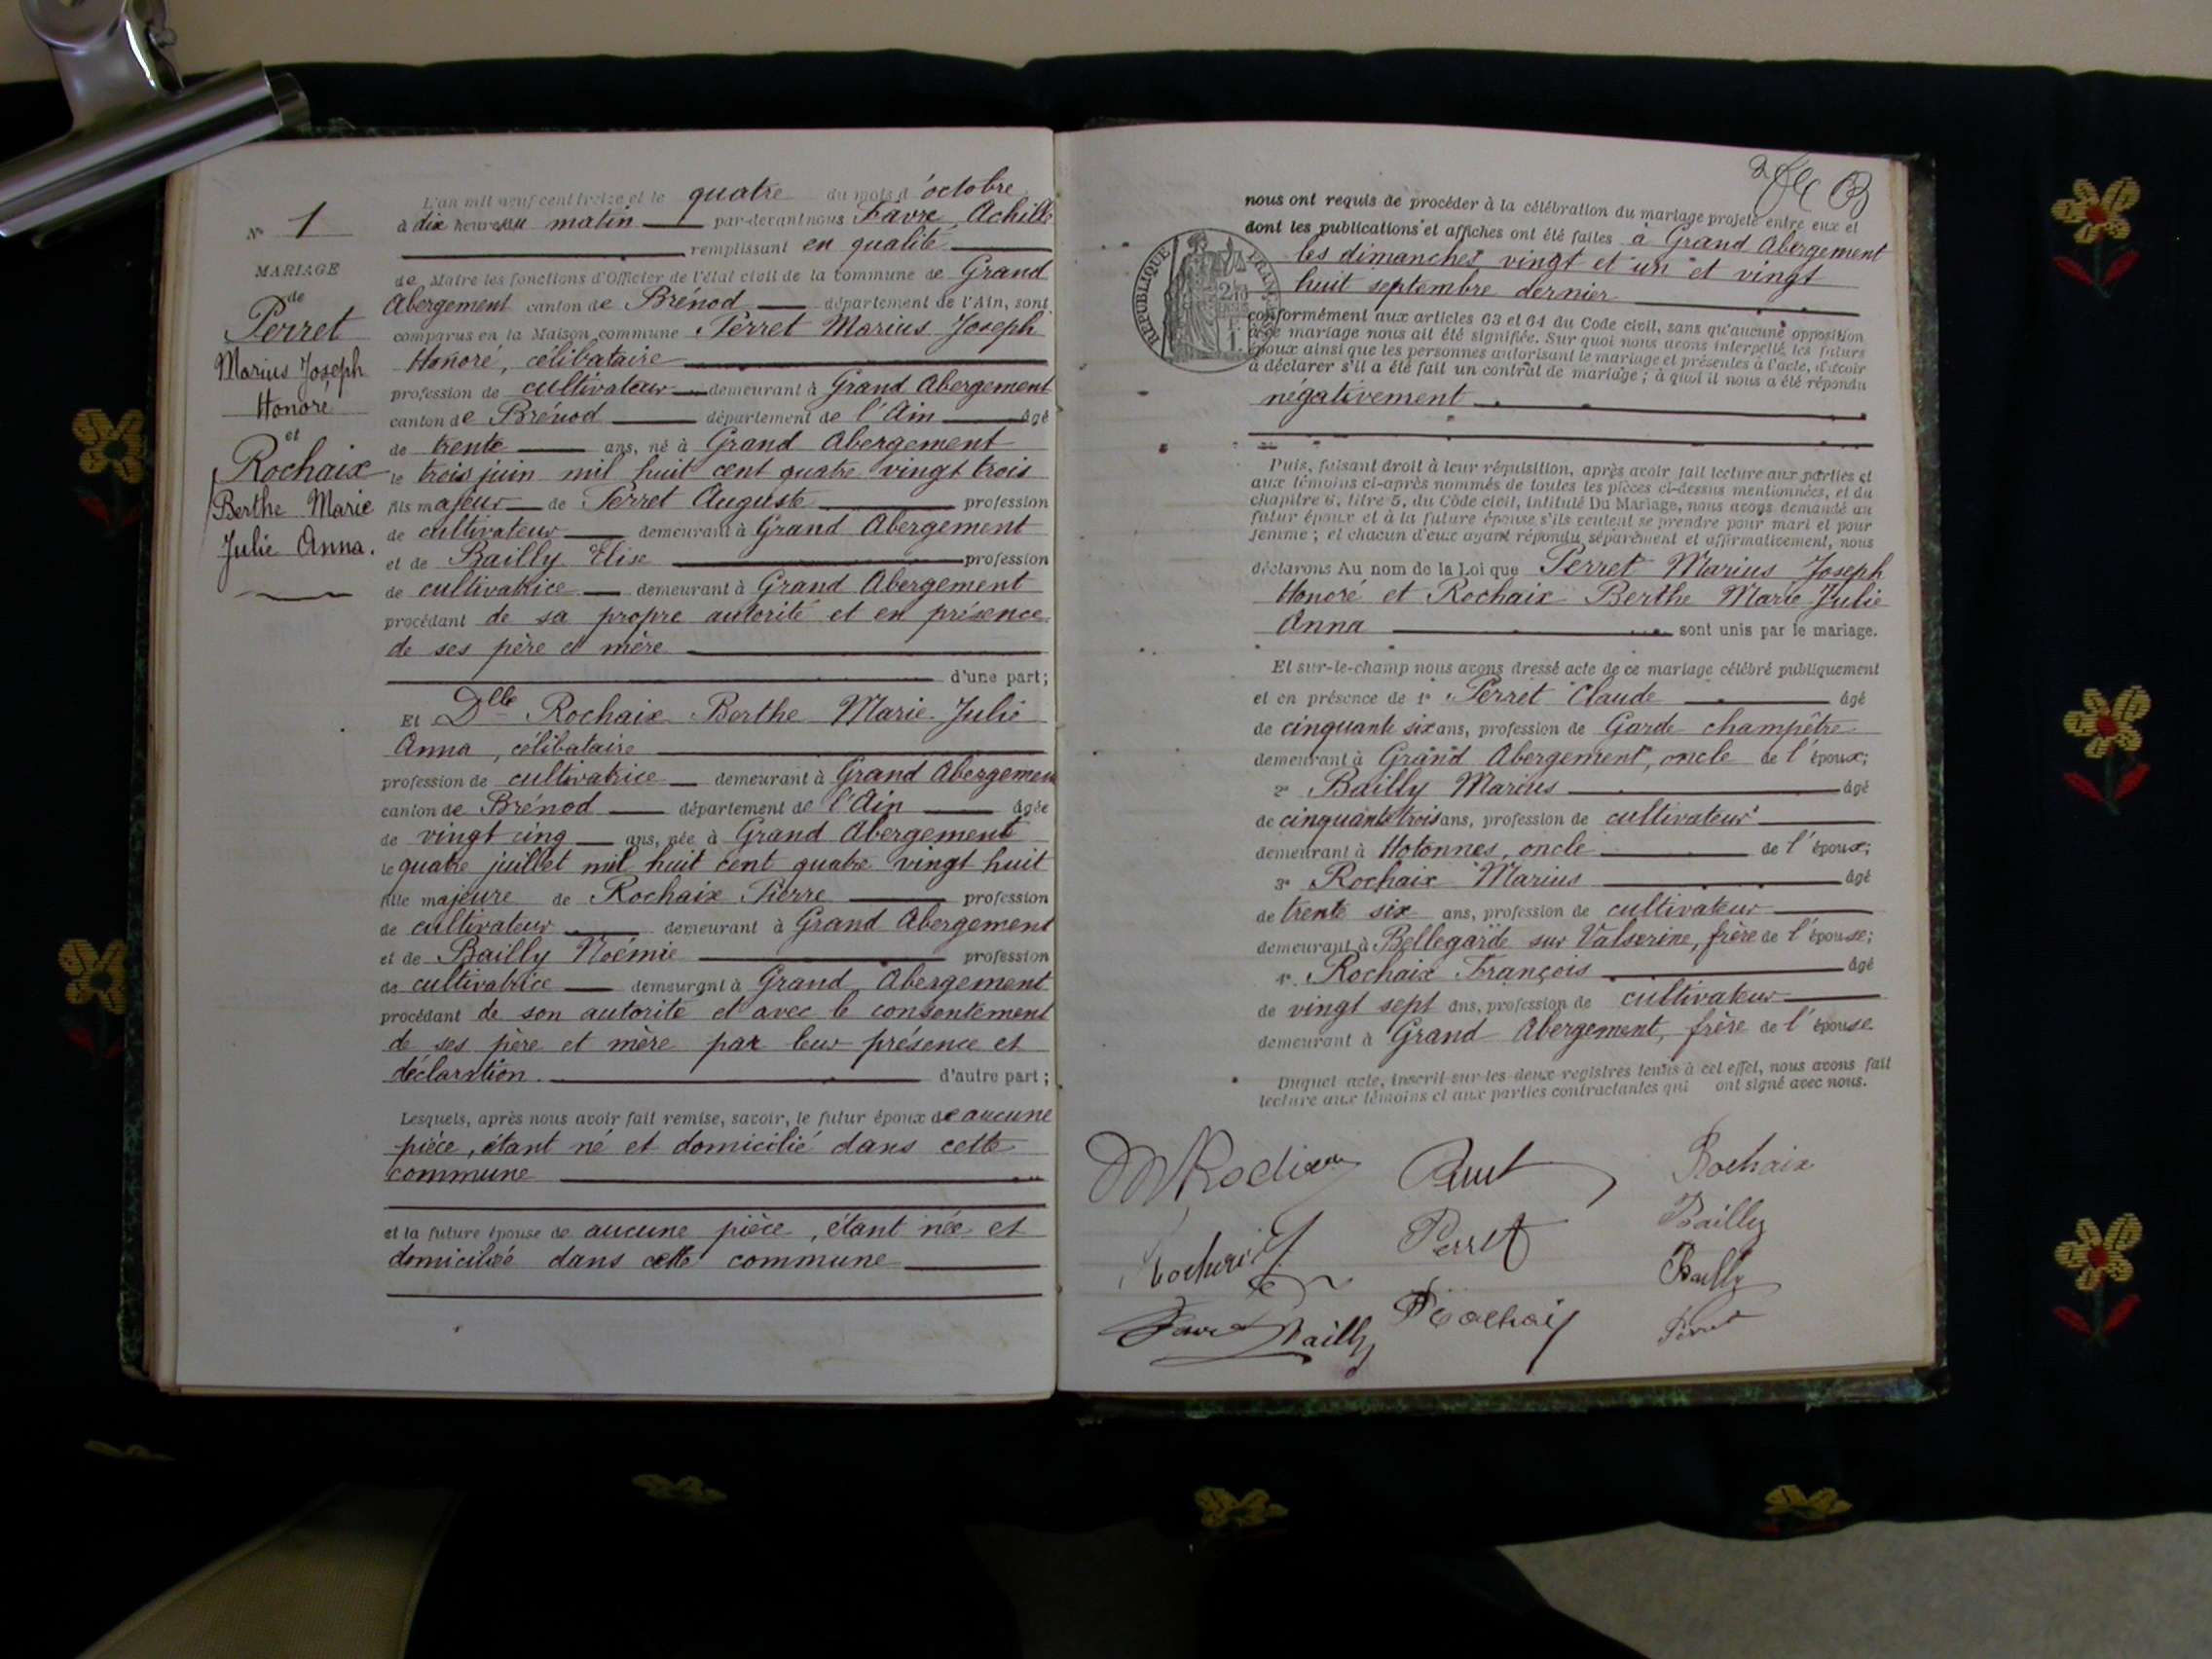 N° 1
MARIAGE
de
Perret
Marius Joseph
Honoré
et
Rochaix
Berthe Marie
Julie Anna.
L'an mil neuf cent treize et le quatre du mois d'octobre
à dix heures du matin par-devant nous Favre Achille
remplissant en qualité
de Maire les fonctions d'Officier de l'état civil de la commune de Grand
Abergement canton de Brénod département de l'Ain, sont
comparus en la Maison commune Perret Marius Joseph
Honoré, célibataire
profession de cultivateur demeurant à Grand Abergement
canton de Brénod département de l'Ain âgé
de trente ans, né à Grand Abergement
le trois juin mil huit cent quatre vingt trois
fils majeur de Perret Auguste profession
de cultivateur demeurant à Grand Abergement
et de Bailly Elise profession
de cultivatrice demeurant à Grand Abergement
procédant de sa propre autorité et en présence
de ses père et mère
d'une part;
Et Dlle Rochaix Berthe Marie Julie
Anna, célibataire
profession de cultivatrice demeurant à Grand Abergement
canton de Brénod département de l'Ain âgée
de vingt cinq ans, née à Grand Abergement
le quatre juillet mil huit cent quatre vingt huit
fille majeure de Rochaix Pierre profession
de cultivateur demeurant à Grand Abergement
et de Bailly Noémie profession
de cultivatrice demeurant à Grand Abergement
procédant de son autorité et avec le consentement
de ses père et mère par leur présence et
déclaration. d'autre part;
Lesquels, après nous avoir fait remise, savoir, le futur époux de aucune
pièce, étant né et domicilié dans cette
commune
et la future épouse de aucune pièce, étant née et
domiciliée dans cette commune
nous ont requis de procéder à la célébration du mariage projeté entre eux et
dont les publications et affiches ont été faites à Grand Abergement
les dimanches vingt et un et vingt
huit septembre dernier
RÉPUBLIQUE FRANÇAISE
conformément aux articles 63 et 64 du Code civil, sans qu'aucune opposition
à ce mariage nous ait été signifiée. Sur quoi nous avons interpellé les futurs
époux ainsi que les personnes autorisant le mariage et présentes à l'acte, d'avoir
à déclarer s'il a été fait un contrat de mariage; à quoi il nous a été répondu
négativement
Puis, faisant droit à leur réquisition, après avoir fait lecture aux parties et
aux témoins ci-après nommés de toutes les pièces ci-dessus mentionnées, et du
chapitre 6, titre 5, du Code civil, intitulé Du Mariage, nous avons demandé au
futur époux et à la future épouse s'ils veulent se prendre pour mari et pour
femme; et chacun d'eux ayant répondu séparément et affirmativement, nous
déclarons Au nom de la Loi que Perret Marius Joseph
Honoré et Rochaix Berthe Marie Julie
Anna sont unis par le mariage.
Et sur-le-champ nous avons dressé acte de ce mariage célébré publiquement
et en présence de 1° Perret Claude âgé
de cinquante six ans, profession de Garde champêtre
demeurant à Grand Abergement, oncle de l'époux;
2° Bailly Marius âgé
de cinquante trois ans, profession de cultivateur
demeurant à Hotonnes, oncle de l'époux;
3° Rochaix Marius âgé
de trente six ans, profession de cultivateur
demeurant à Bellegarde sur Valserine, frère de l'épouse;
4° Rochaix François âgé
de vingt sept ans, profession de cultivateur
demeurant à Grand Abergement, frère de l'épouse.
Duquel acte, inscrit sur les deux registres tenus à cet effet, nous avons fait
lecture aux témoins et aux parties contractantes qui ont signé avec nous.
Rochaix
Bailly
Perret
Bailly
Rochaix
Favre Bailly
Perret